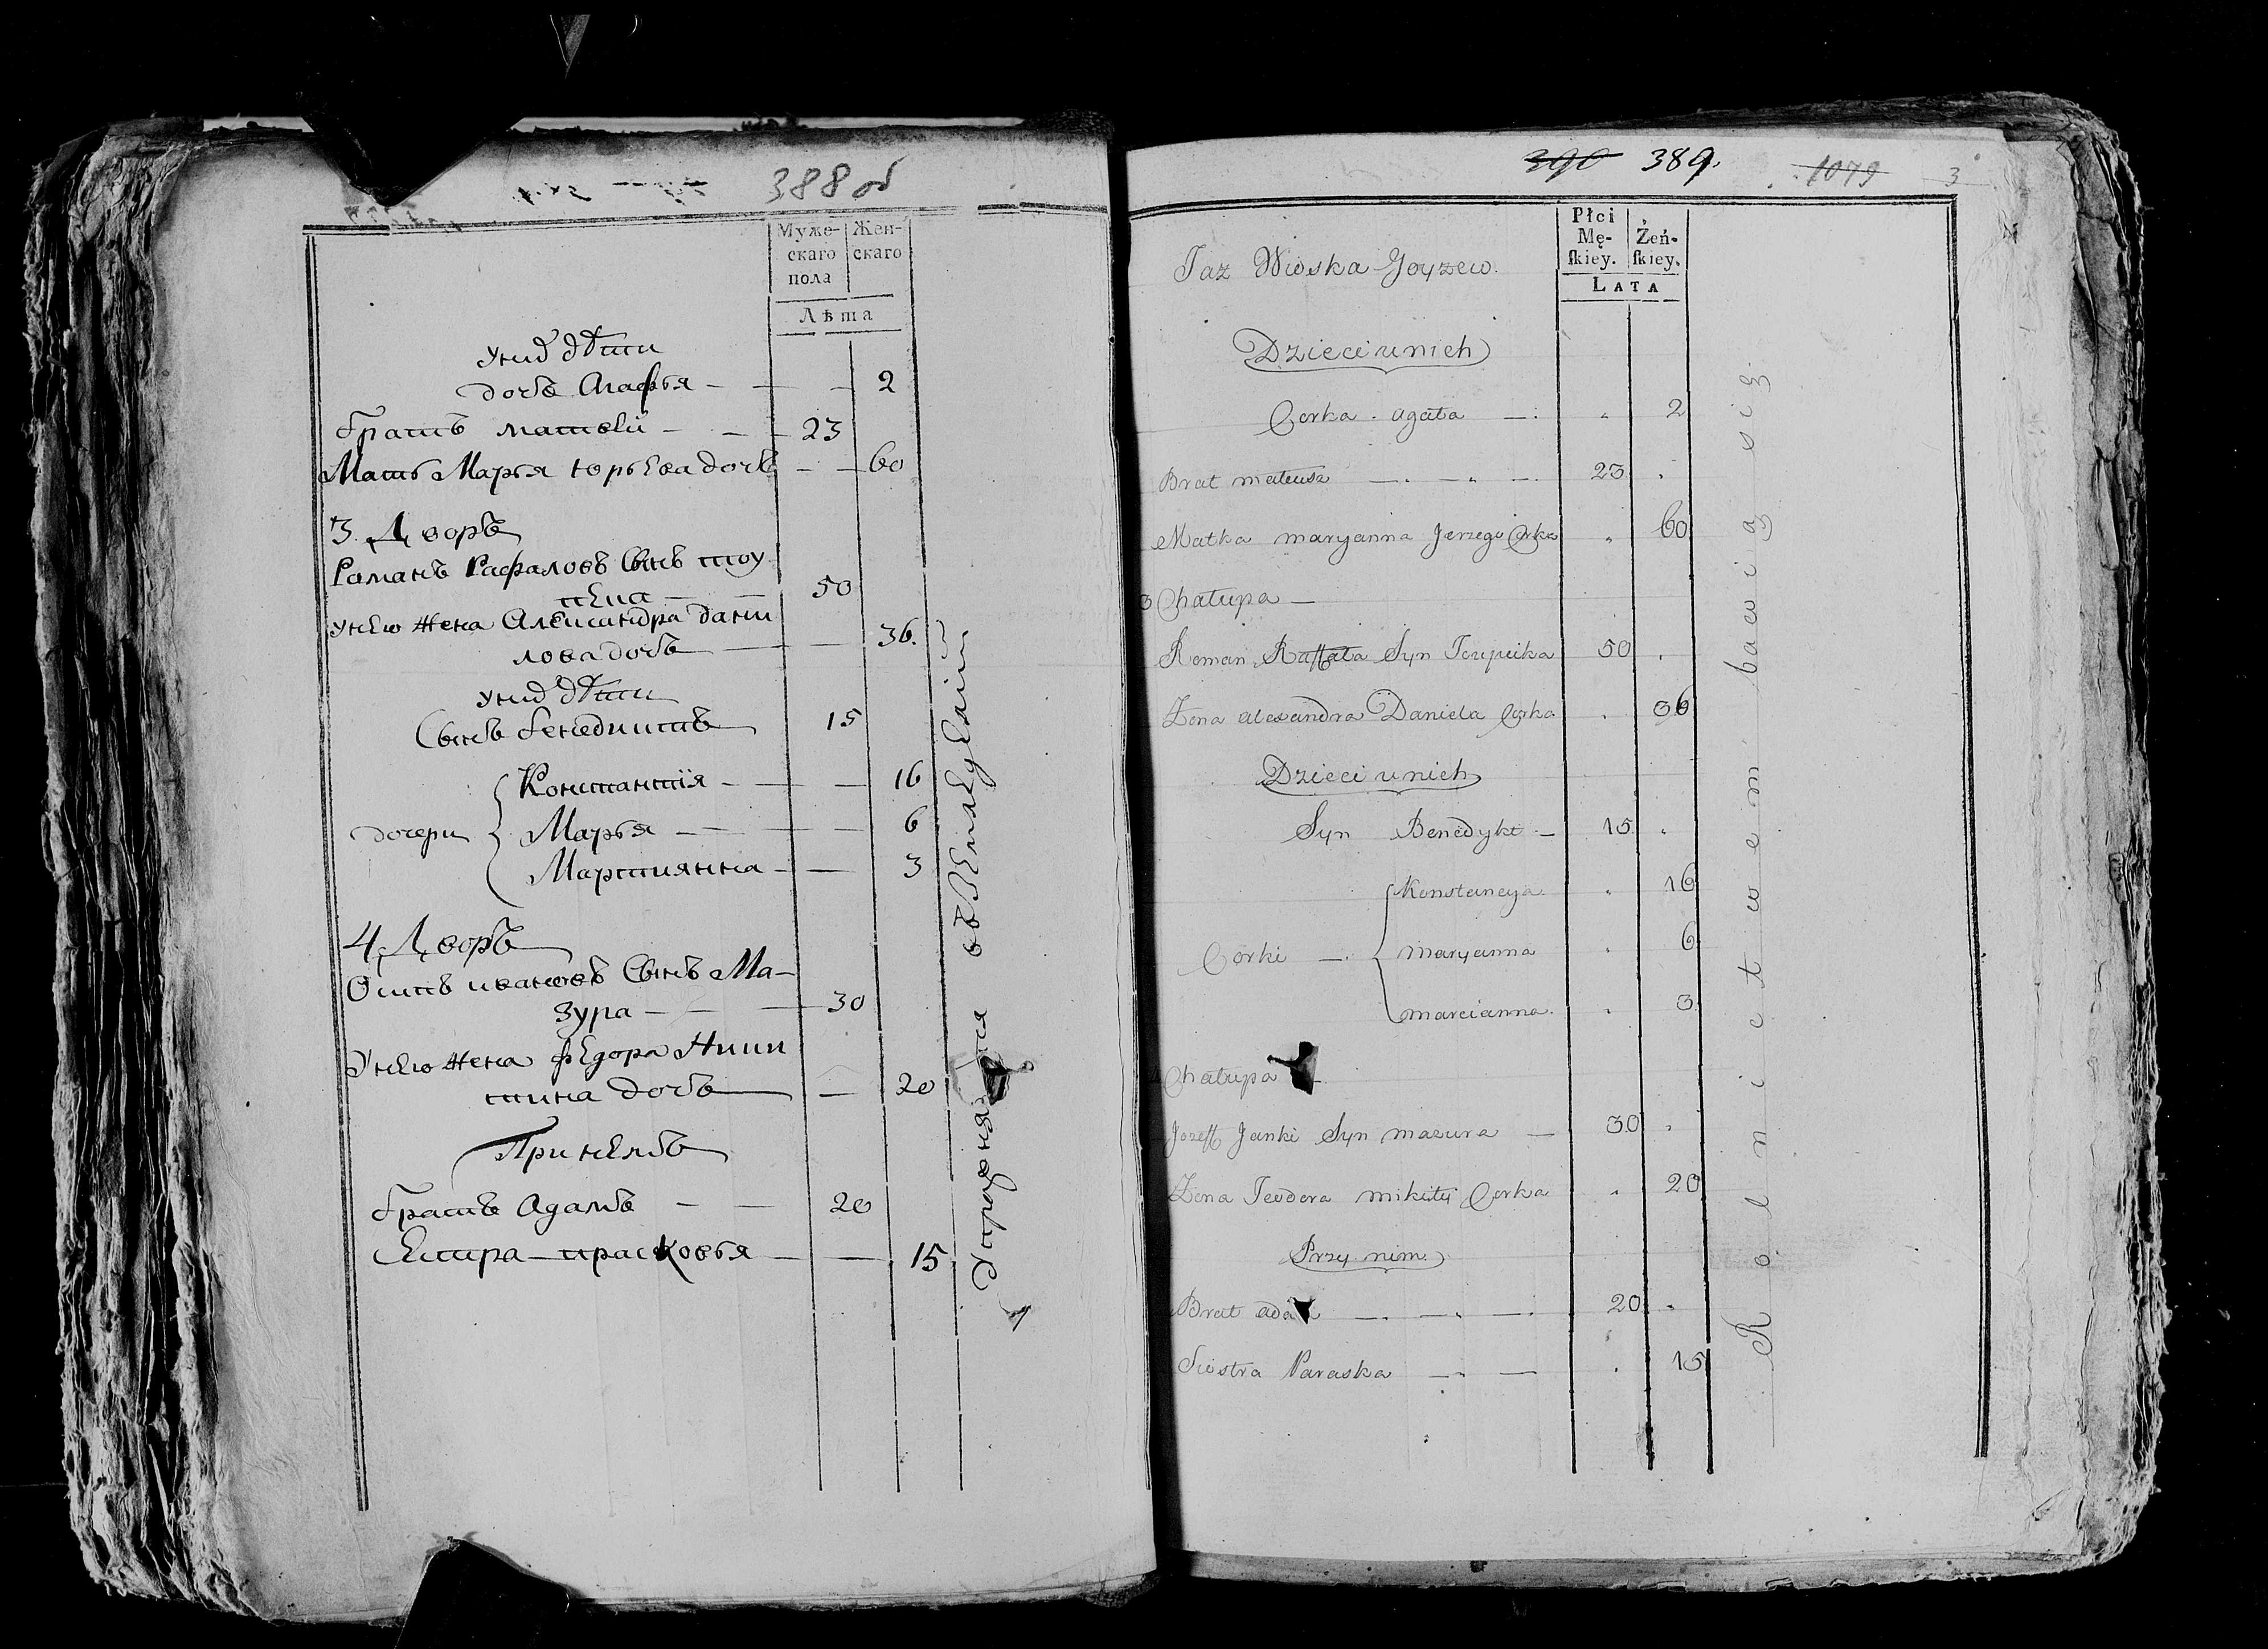 388 об
Муже-
скаго
пола
Жен-
скаго
Лѣта
у нид дѣти
дочь Агафья - - - 2
братъ матвѣй - - - 23
Мать Марья юрьева дочь - - 60
3. Дворъ
Раманъ Рафаловъ Сынъ
50
у нево жена Александра дани
лова дочь - - 36.
у нид дѣти
Сынъ бенедиктъ 15
Константія - - - 16
дочери Марья - - - 6
Марциянна - - 3
4 Дворъ
Осипъ ивановъ Сынъ Ма-
зура - - 30
У нево жена федора Ники
тина дочь - 20
При немъ
братъ Адамъ - - 20
Сестра прасковья - - 15
390 389.
1079 3
Taż Wioska
Płci
Mę-
ſkiey.
Żeń-
ſkiey.
LATA
Dzieci u nich
Corka agata - 2
Brat mateusz - - - 23
Matka maryanna Jerzego Corka 60
3 Chałupa -
Roman Raffała Syn 50
Żona alexandra Daniela Corka 36
Dzieci u nich
Syn Benedykt - 15
Konstancya 16
Corki - maryanna 6
marcianna 3
Chałupa -
Jozeff Janki Syn mazura - 30
Żona Teodora mikity Corka 20
Przy nim
Brat ada - - - 20
Siostra Paraska - - 15
Rolnictwem bawią się